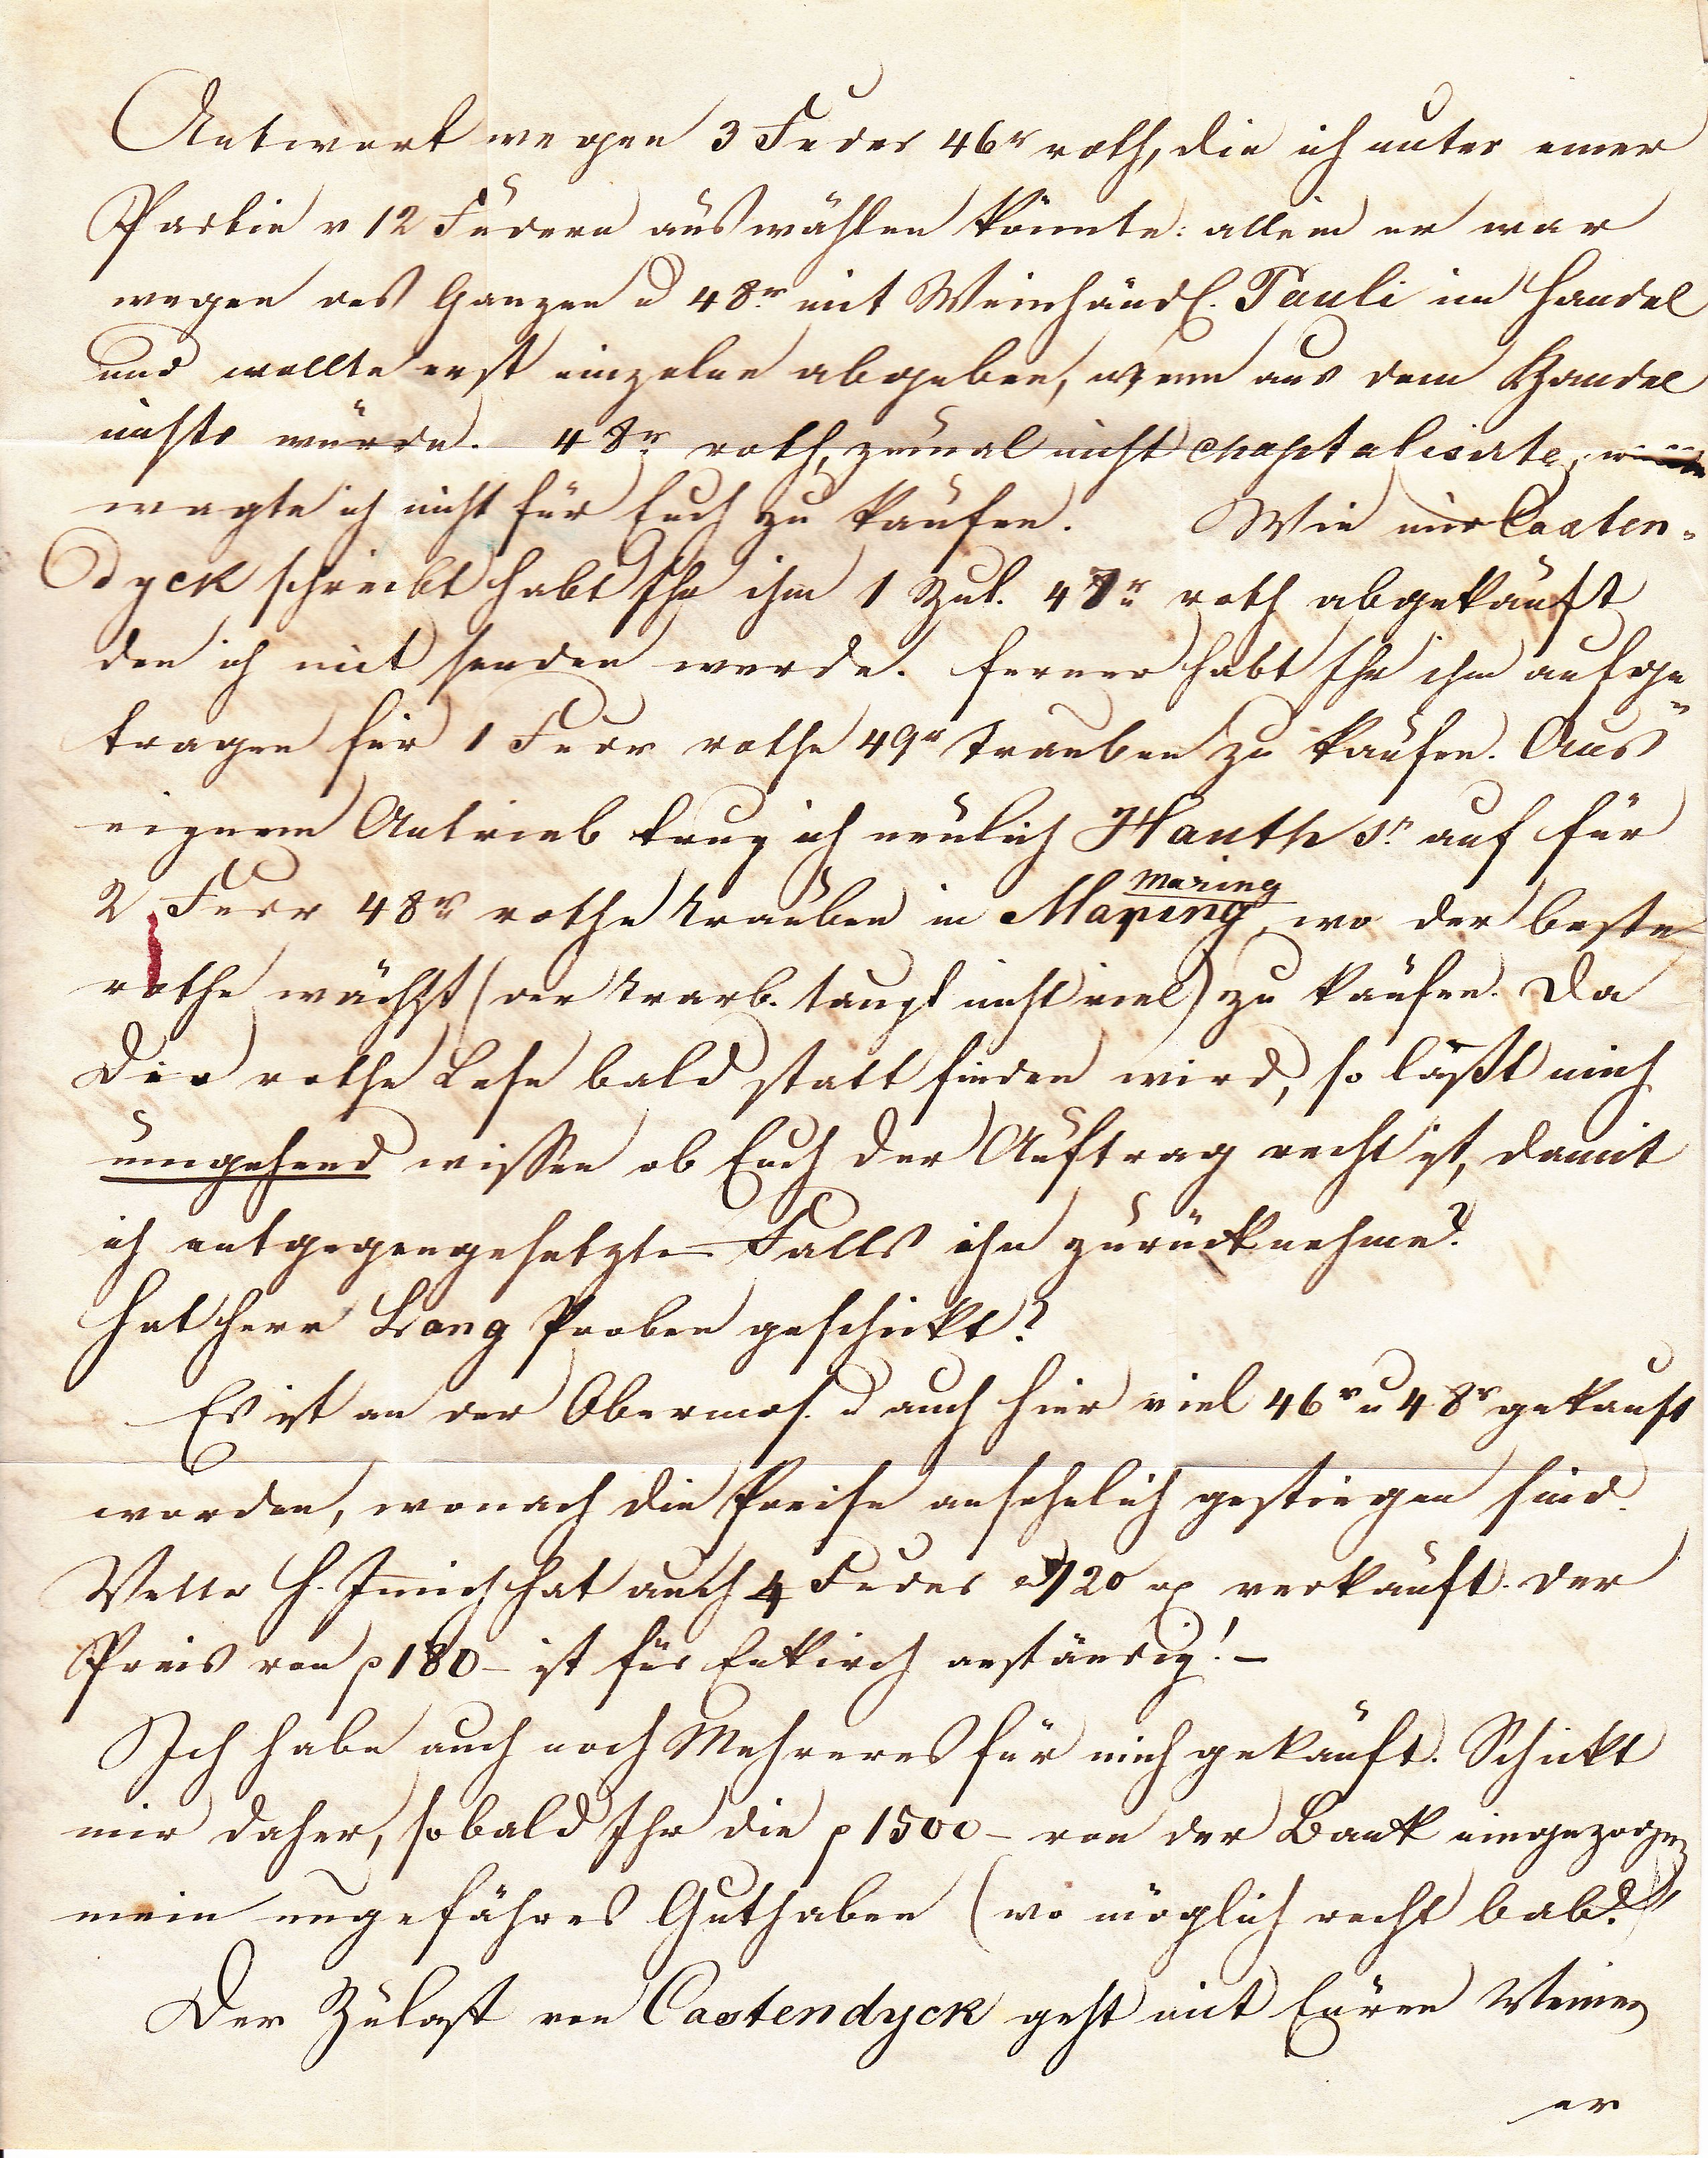 Antwort wegen 3 Fuder 46r roth, die ich unter einer
Parthie v 12 Fudern auswählen könnte: allein er war
wegen des Ganzen u 48r mit Weinhändl. Pauli im Handel
und wollte erst einzelne abgeben, wenn aus dem Handel
nichts würde. 48r roth, zumal nicht chaptalisirte,
wagte ich nicht für Euch zu kaufen. Wie mir Casten-
dyck schreibt habt Ihr ihm 1 Zul. 48r roth abgekauft
den ich mit senden werde. Ferner habt Ihr ihm aufge-
tragen für 1 Fudr rothe 49r Trauben zu kaufen. Aus
eignem Antrieb trug ich neulich Hauth sr. auf für
2 Fudr 48r rothe Trauben in Maring Maring, wo der beste
rothe wächst (der Trarb. taugt nicht viel) zu kaufen. Da
die rothe Lese bald statt finden wird, so laßt mich
umgehend wissen ob Euch der Auftrag recht ist, damit
ich entgegengesetzten Falls ihn zurücknehme?
Hat Herr Lang Proben geschickt?
Es ist an der Obermos. u auch hier viel 46r u 48r gekauft
worden, wonach die Preise ansehnlich gestiegen sind.
Vetter H. Immich hat auch 4 Fuder verkauft. Der
Preis von p 180 – ist für Enkirch anständig! –
Ich habe auch noch Mehreres für mich gekauft. Schickt
mir daher, sobald Ihr die p 1500 – von der Bank eingezogen
mein ungefähres Guthaben (wo möglich recht bald.)
Der Zulast von Castendyck geht mit Euren Weinen
er